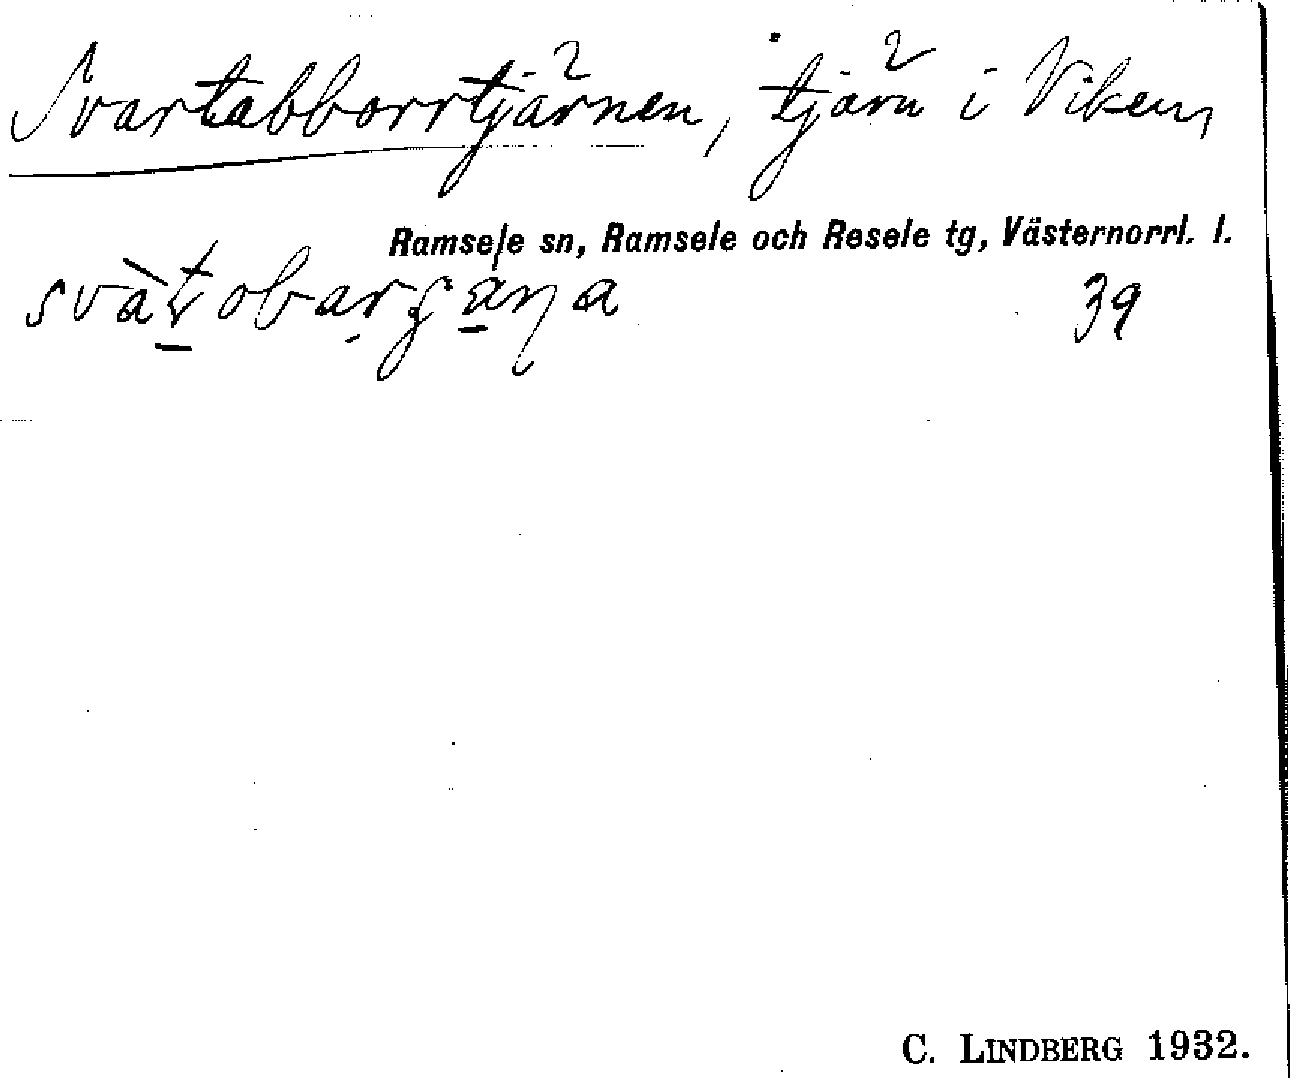 Svartabborrtjärnen, tjärn i Viken,
Ramsele sn, Ramsele och Resele tg, Västernorrl. l.
39
C. LINDBERG 1932.